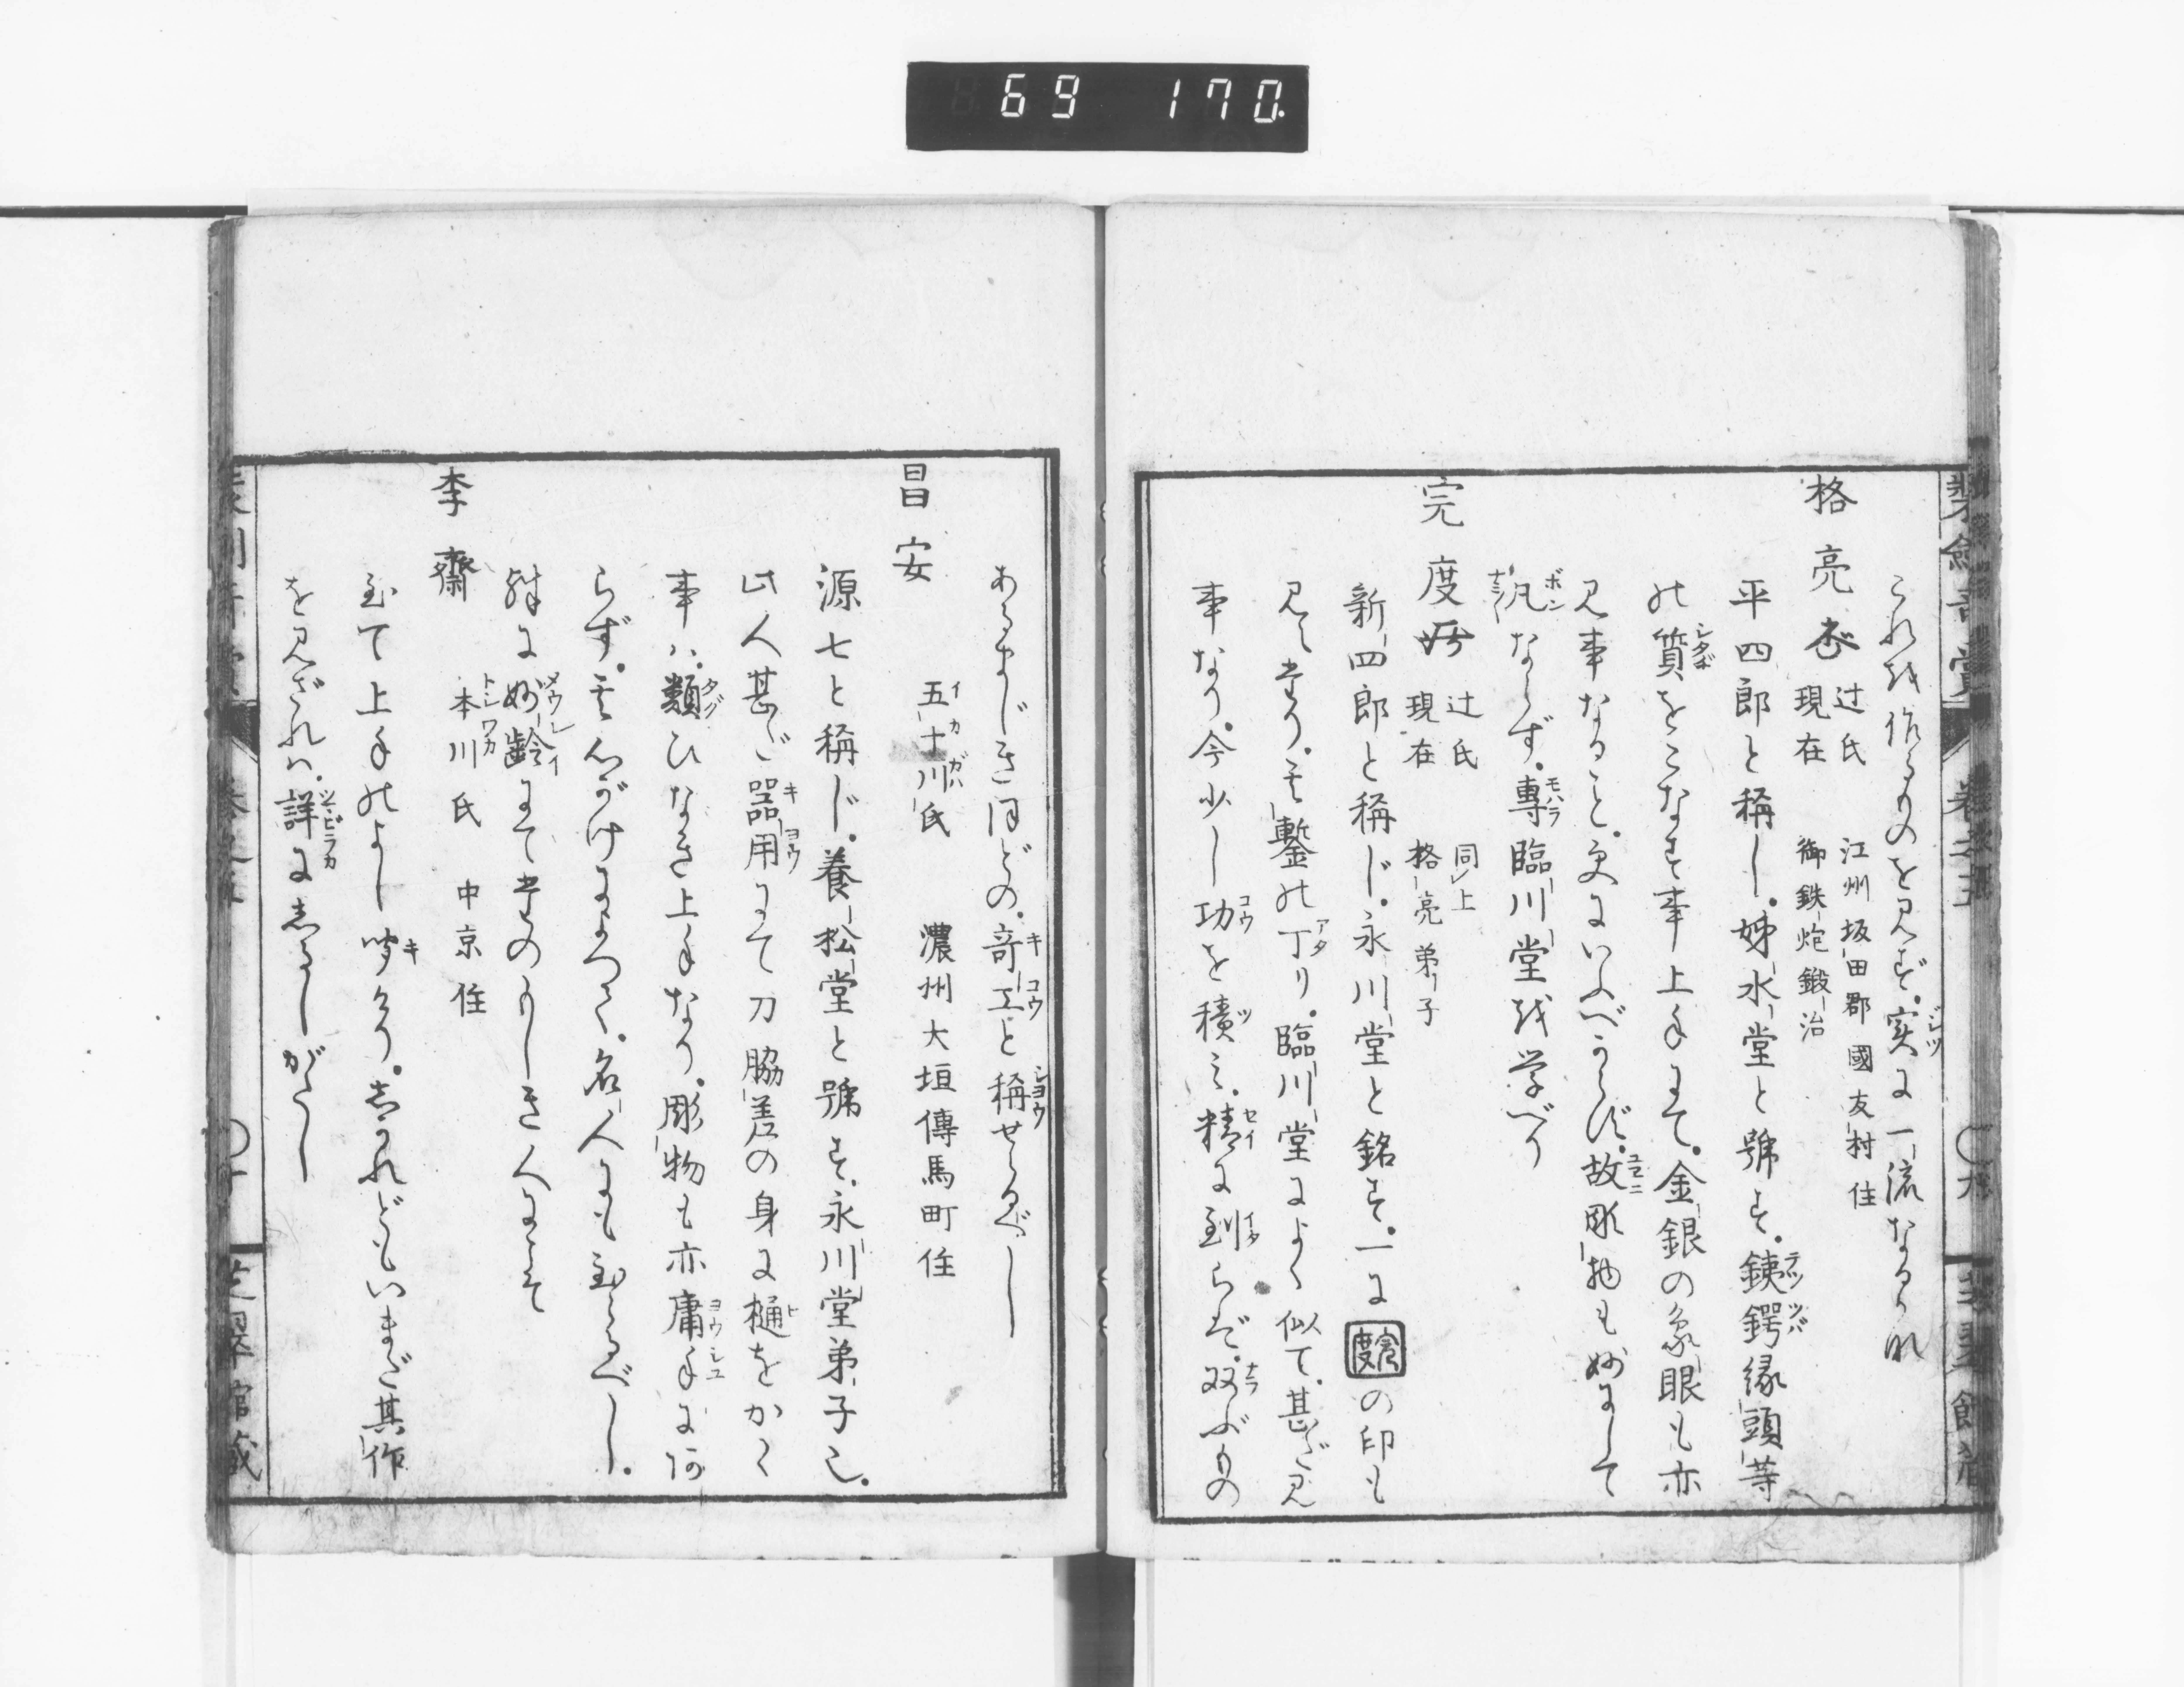 69 170
これを作るものを見ず。実に一流なるかれ
格亮 辻氏 現在 江州坂田郡國友村住 御鉄炮鍛治
平四郎と稱し。姊水堂と號す。銕鍔縁頭等
の質をこなす事上手にて。金銀の象眼も亦
見事なること。更にいふべからず。故彫物も妙にして
凡ならず。專臨川堂を学べり
完度 辻氏 現在 同上 格亮弟子
新四郎と稱じ。永川堂と銘す。一に完度の印も
見えたり。其鏨の丁り。臨川堂によく似て。甚だ見
事なり。今少し功を積み。精に到らば。双ぶもの
あるまじきほどの。奇工と稱せらるべし
昌安 五十川氏 濃州大垣傳馬町住
源七と稱じ。養松堂と號す。永川堂弟子也。
此人甚だ器用にて刀脇差の身に樋をかく
事ハ。類ひなき上手なり。彫物も亦庸手にあ
らず。其心がけによつて。名人にも至らるべし。
殊に妙齢にてたのもしき人にこそ
李齋 本川氏 中京住
至て上手のよし聞けり。しかれどもいまだ其作
を見ざれハ。詳にしるしがたし